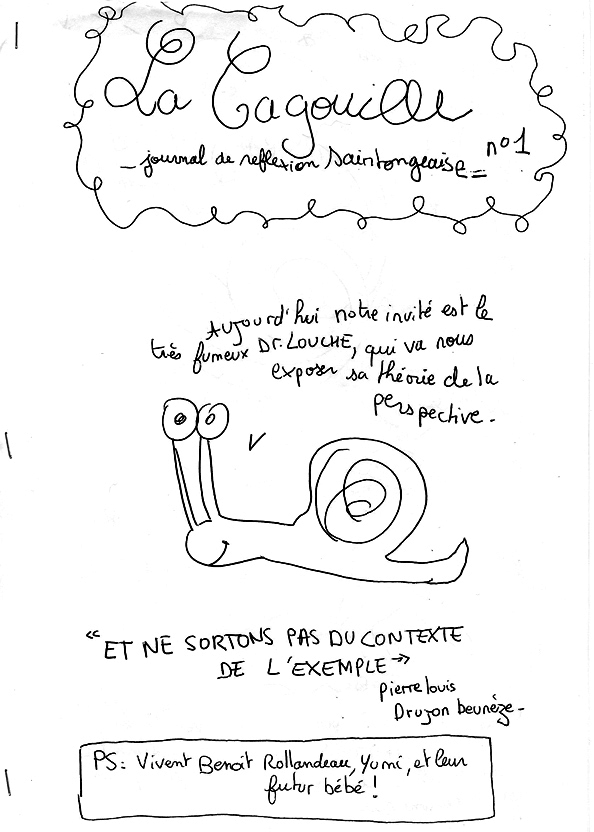 La Cagouille
_ journal de reflexion Saintongeaise_ n°1
Aujourd'hui notre invité est le
très fumeux Dr. LOUCHE, qui va nous
exposer sa théorie de la
perspective.
« ET NE SORTONS PAS DU CONTEXTE
DE L'EXEMPLE »
Pierre louis
Drujon beunèze.
PS: Vivent Benoit Rollandeau, Yumi, et leur
futur bébé !